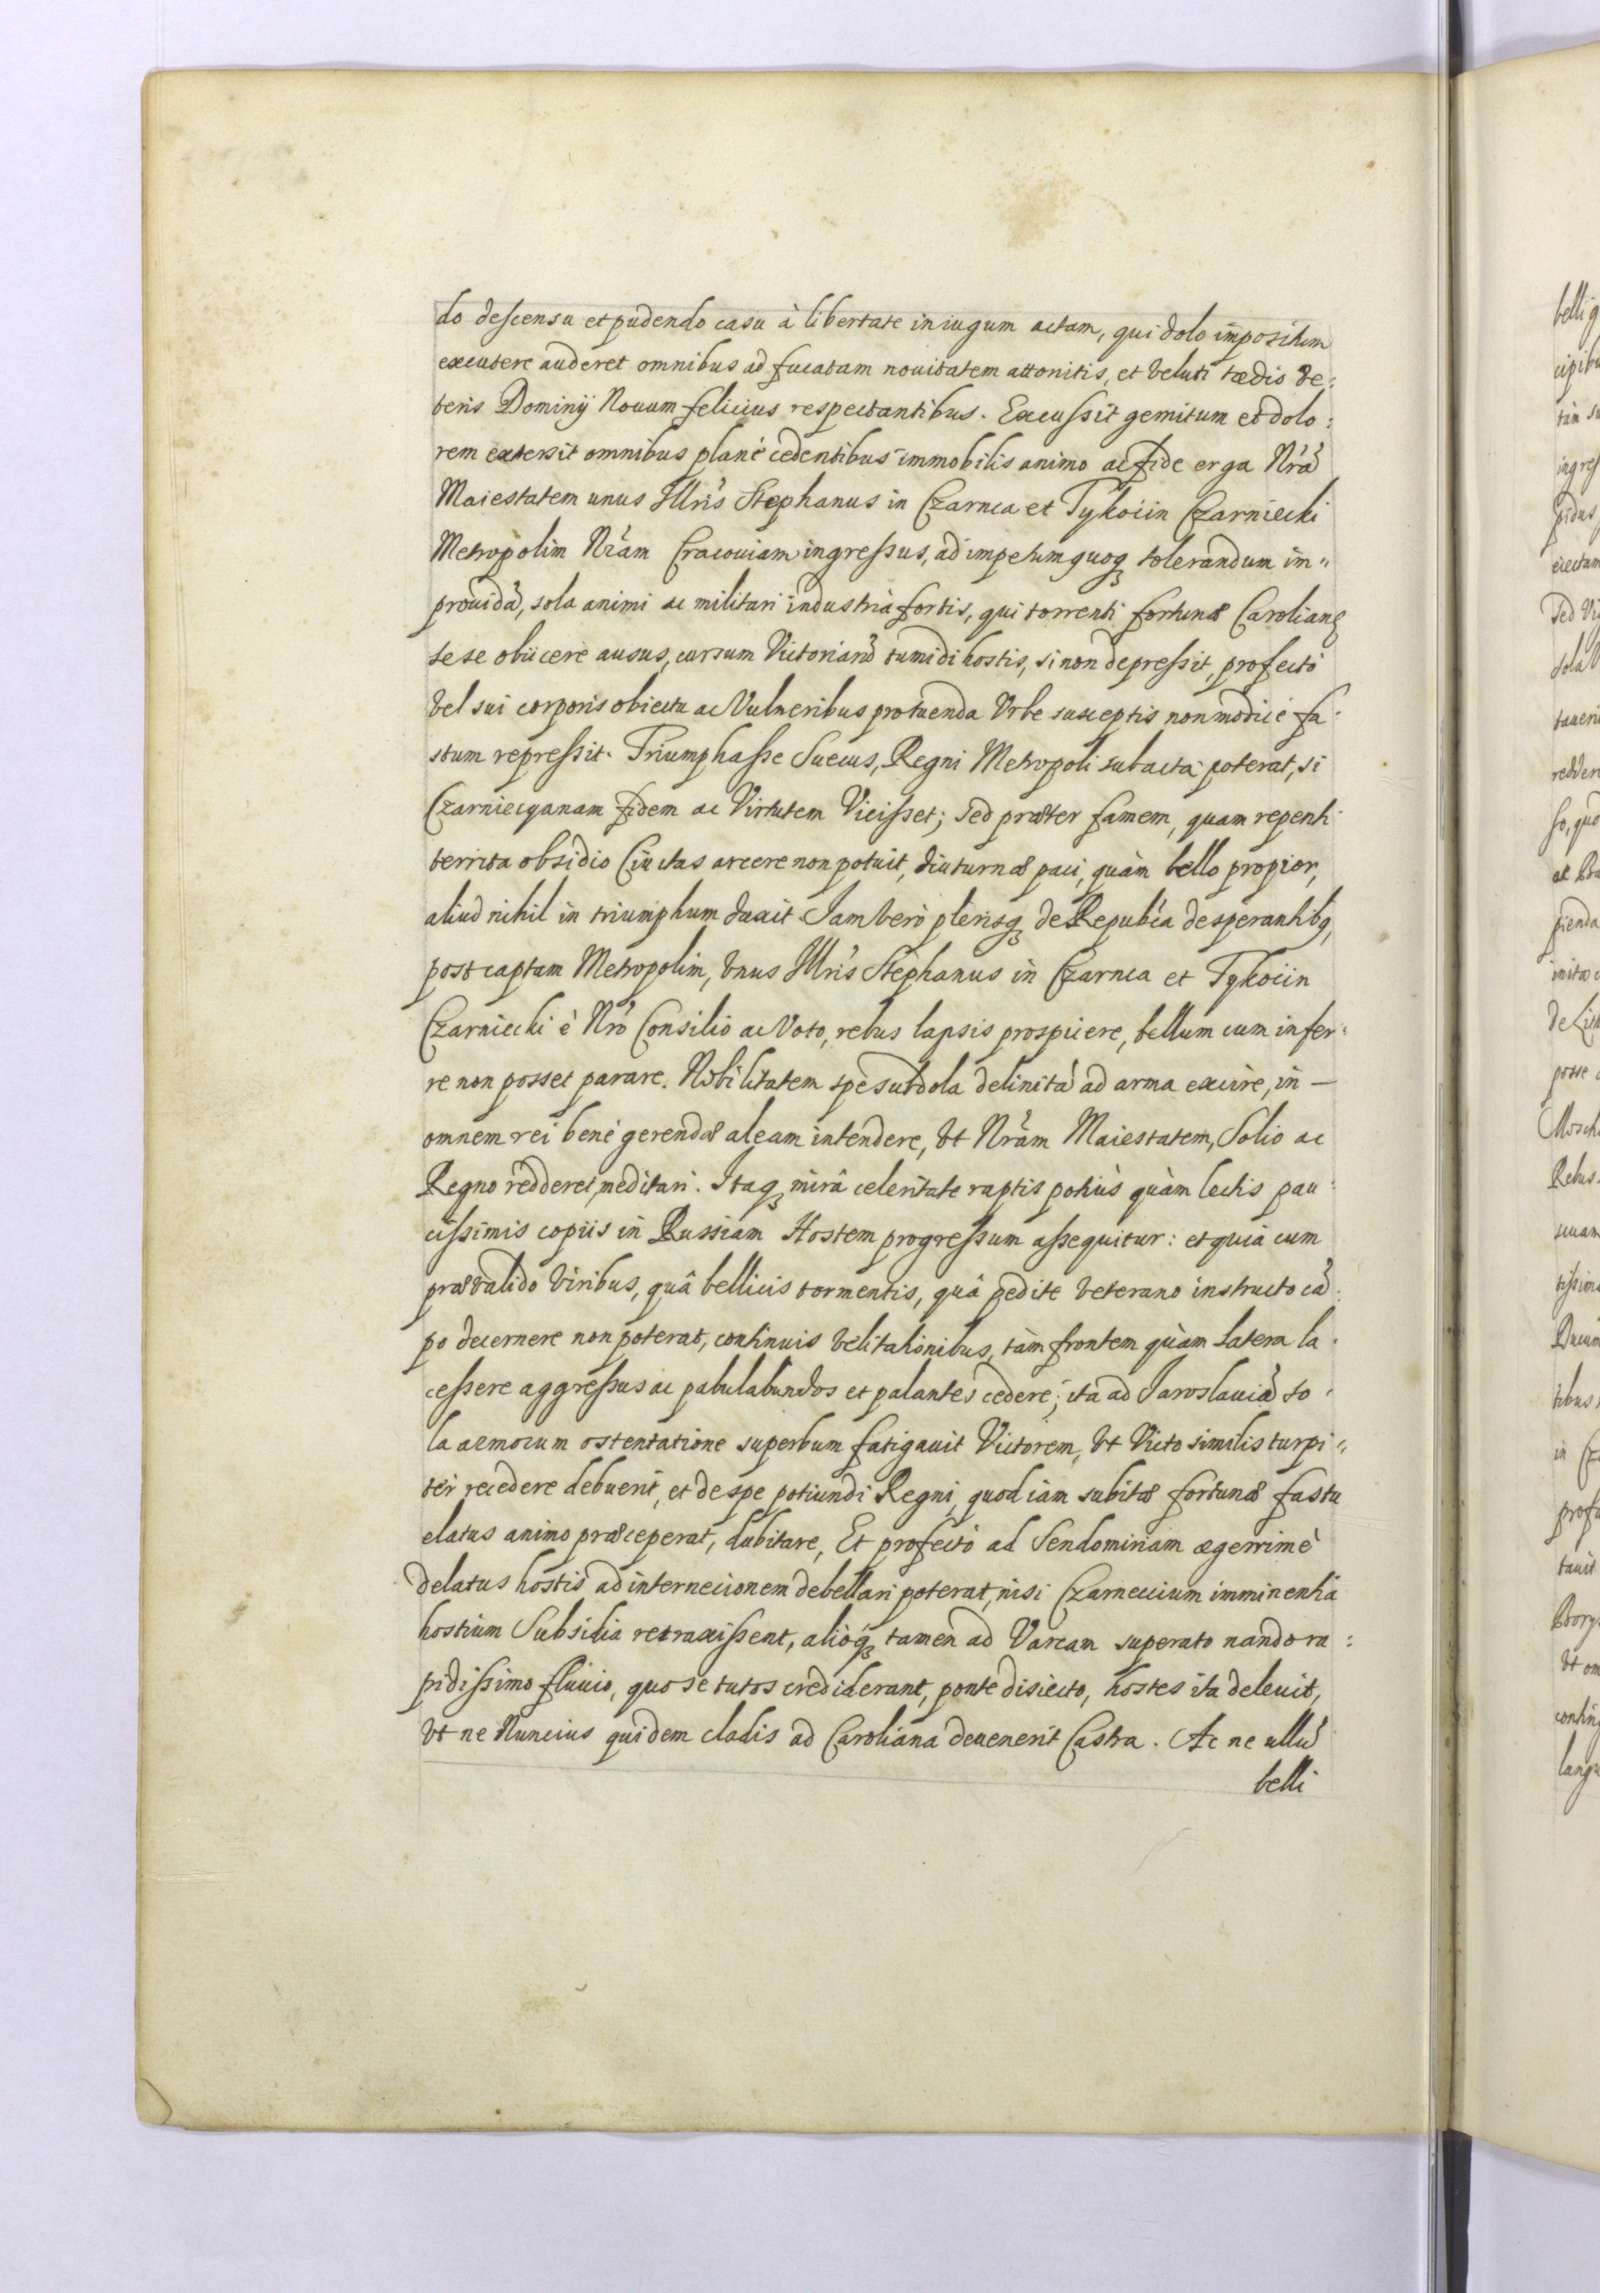 do descensu et pudendo casu à libertate in iugum actam, qui dolo impositum
excutere auderet omnibus ad fucatam nouitatem attonitis, et veluti tædio ve:
teris Dominij Nouum felicius respectantibus. Excussit gemitum et dolo:
rem extersit omnibus planè cedentibus immobilis animo ac fide erga Nrã
Maiestatem unus Illris Stephanus in Czarnca et Tykocin Czarniecki
Metropolim Nrãm Cracouiam ingressus, ad impetum quoq tolerandum in„
prouidã, sola animi ac militari industria fortis, qui torrenti fortunæ Carolianę
sese obiicere ausus, cursum Victoriarũ tumidi hostis, si non depressit, profectò
vel sui corporis obiectu ac Vulneribus pro tuenda Vrbe susceptis non modicè fa:
stum repressit. Triumphasse Suecus, Regni Metropoli subacta poterat, si
Czarniecyanam fidem ac Virtutem Vicisset; sed præter famem, quam repenti:
territa obsidio Ciuitas arcere non potuit, diuturnæ paci, quàm bello propior,
aliud nihil in triumphum duxit. Iam verò plerisq de Republca desperantibq,
post captam Metropolim, vnus Illris Stephanus in Czarnca et Tykocin
Czarniecki è Nrõ Consilio ac Voto, rebus lapsis prospicere, bellum cum infer:
re non posset parare. Nobilitatem spe subdola delinitã ad arma excire, in —
omnem rei benè gerendæ aleam intendere, vt Nrãm Maiestatem, Solio ac
Regno redderet, meditari. Itaq mirâ celeritate raptis potiùs quàm lectis pau:
cissimis copiis in Russiam Hostem progressum assequitur: et quia cum
prævalido viribus, quâ bellicis tormentis, quâ pedite veterano instructo cã:
po decernere non poterat, continuis velitationibus, tàm frontem quàm latera la:
cessere aggressus ac pabulabundos et palantes cedere; ita ad Iaroslauiã so:
la armorum ostentatione superbum fatigauit Victorem, vt Victo similis turpi„
ter recedere debuerit, et de spe potiundi Regni, quod iam subitæ fortunæ fastu
elatus animo præceperat, dubitare, Et profectò ad Sendomiriam ægerrimè
delatus hostis ad internecionem debellari poterat, nisi Czarneccium imminentia
hostium Subsidia retraxissent, alioq tamen ad Varcam superato nando ra:
pidissimo fluuio, quo se tutos crediderant, ponte disiecto, hostes ita deleuit,
vt ne Nuncius quidem cladis ad Caroliana deuenerit Castra. Ac ne ullũ
belli